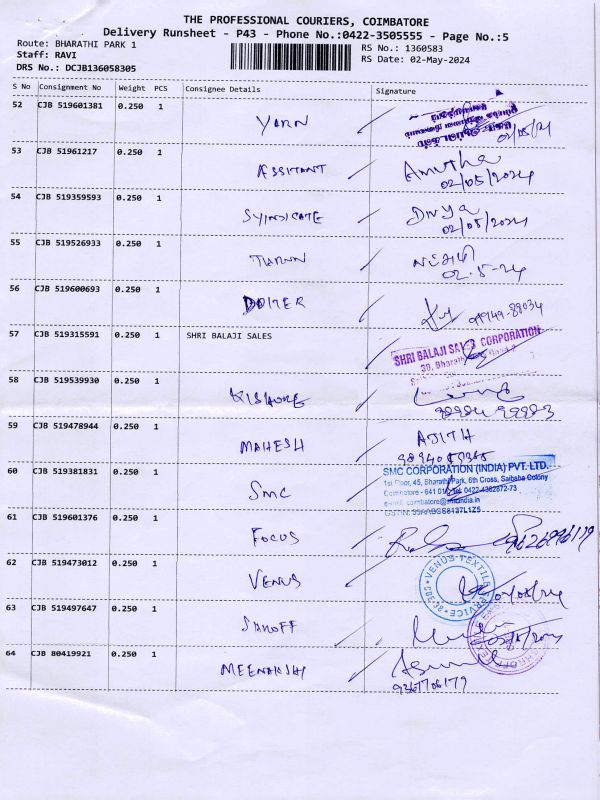 THE PROFESSIONAL COURIERS, COIMBATORE
Delivery Runsheet - P43 - Phone No.:0422-3505555 - Page No.:5
Route: BHARATHI PARK 1
RS No.: 1360583
Staff: RAVI
RS Date: 02-May-2024
DRS No.: DCJB136058305
S No Consignment No Weight PCS Consignee Details Signature
52 CJB 519601381 0.250 1
YARN 02/05/24
53 CJB 51961217 0.250 1
ASSITANT Amutha
02/05/2024
54 CJB 519359593 0.250 1
SYINDICATE Divya
02/05/2024
55 CJB 519526933 0.250 1
TARUN
02.5-24
56 CJB 519600693 0.250 1
DOITER
57 CJB 519315591 0.250 1 SHRI BALAJI SALES
SHRI BALAJI SALES CORPORATION
58 CJB 519539930 0.250 1
KISHORE
59 CJB 519478944 0.250 1
MAHESH AJITH
60 CJB 519381831 0.250 1
SMC CORPORATION (INDIA) PVT. LTD.
1st Floor, 45, Bharathi Park, 6th Cross, Saibaba Colony
SMC Coimbatore - 641 011
61 CJB 519601376 0.250 1
FOCUS
62 CJB 519473012 0.250 1
VENUS VENUS TEXTILE SERVICE
63 CJB 519497647 0.250 1
SAROFF
64 CJB 80419921 0.250 1
MEENAKSHI
9367706179